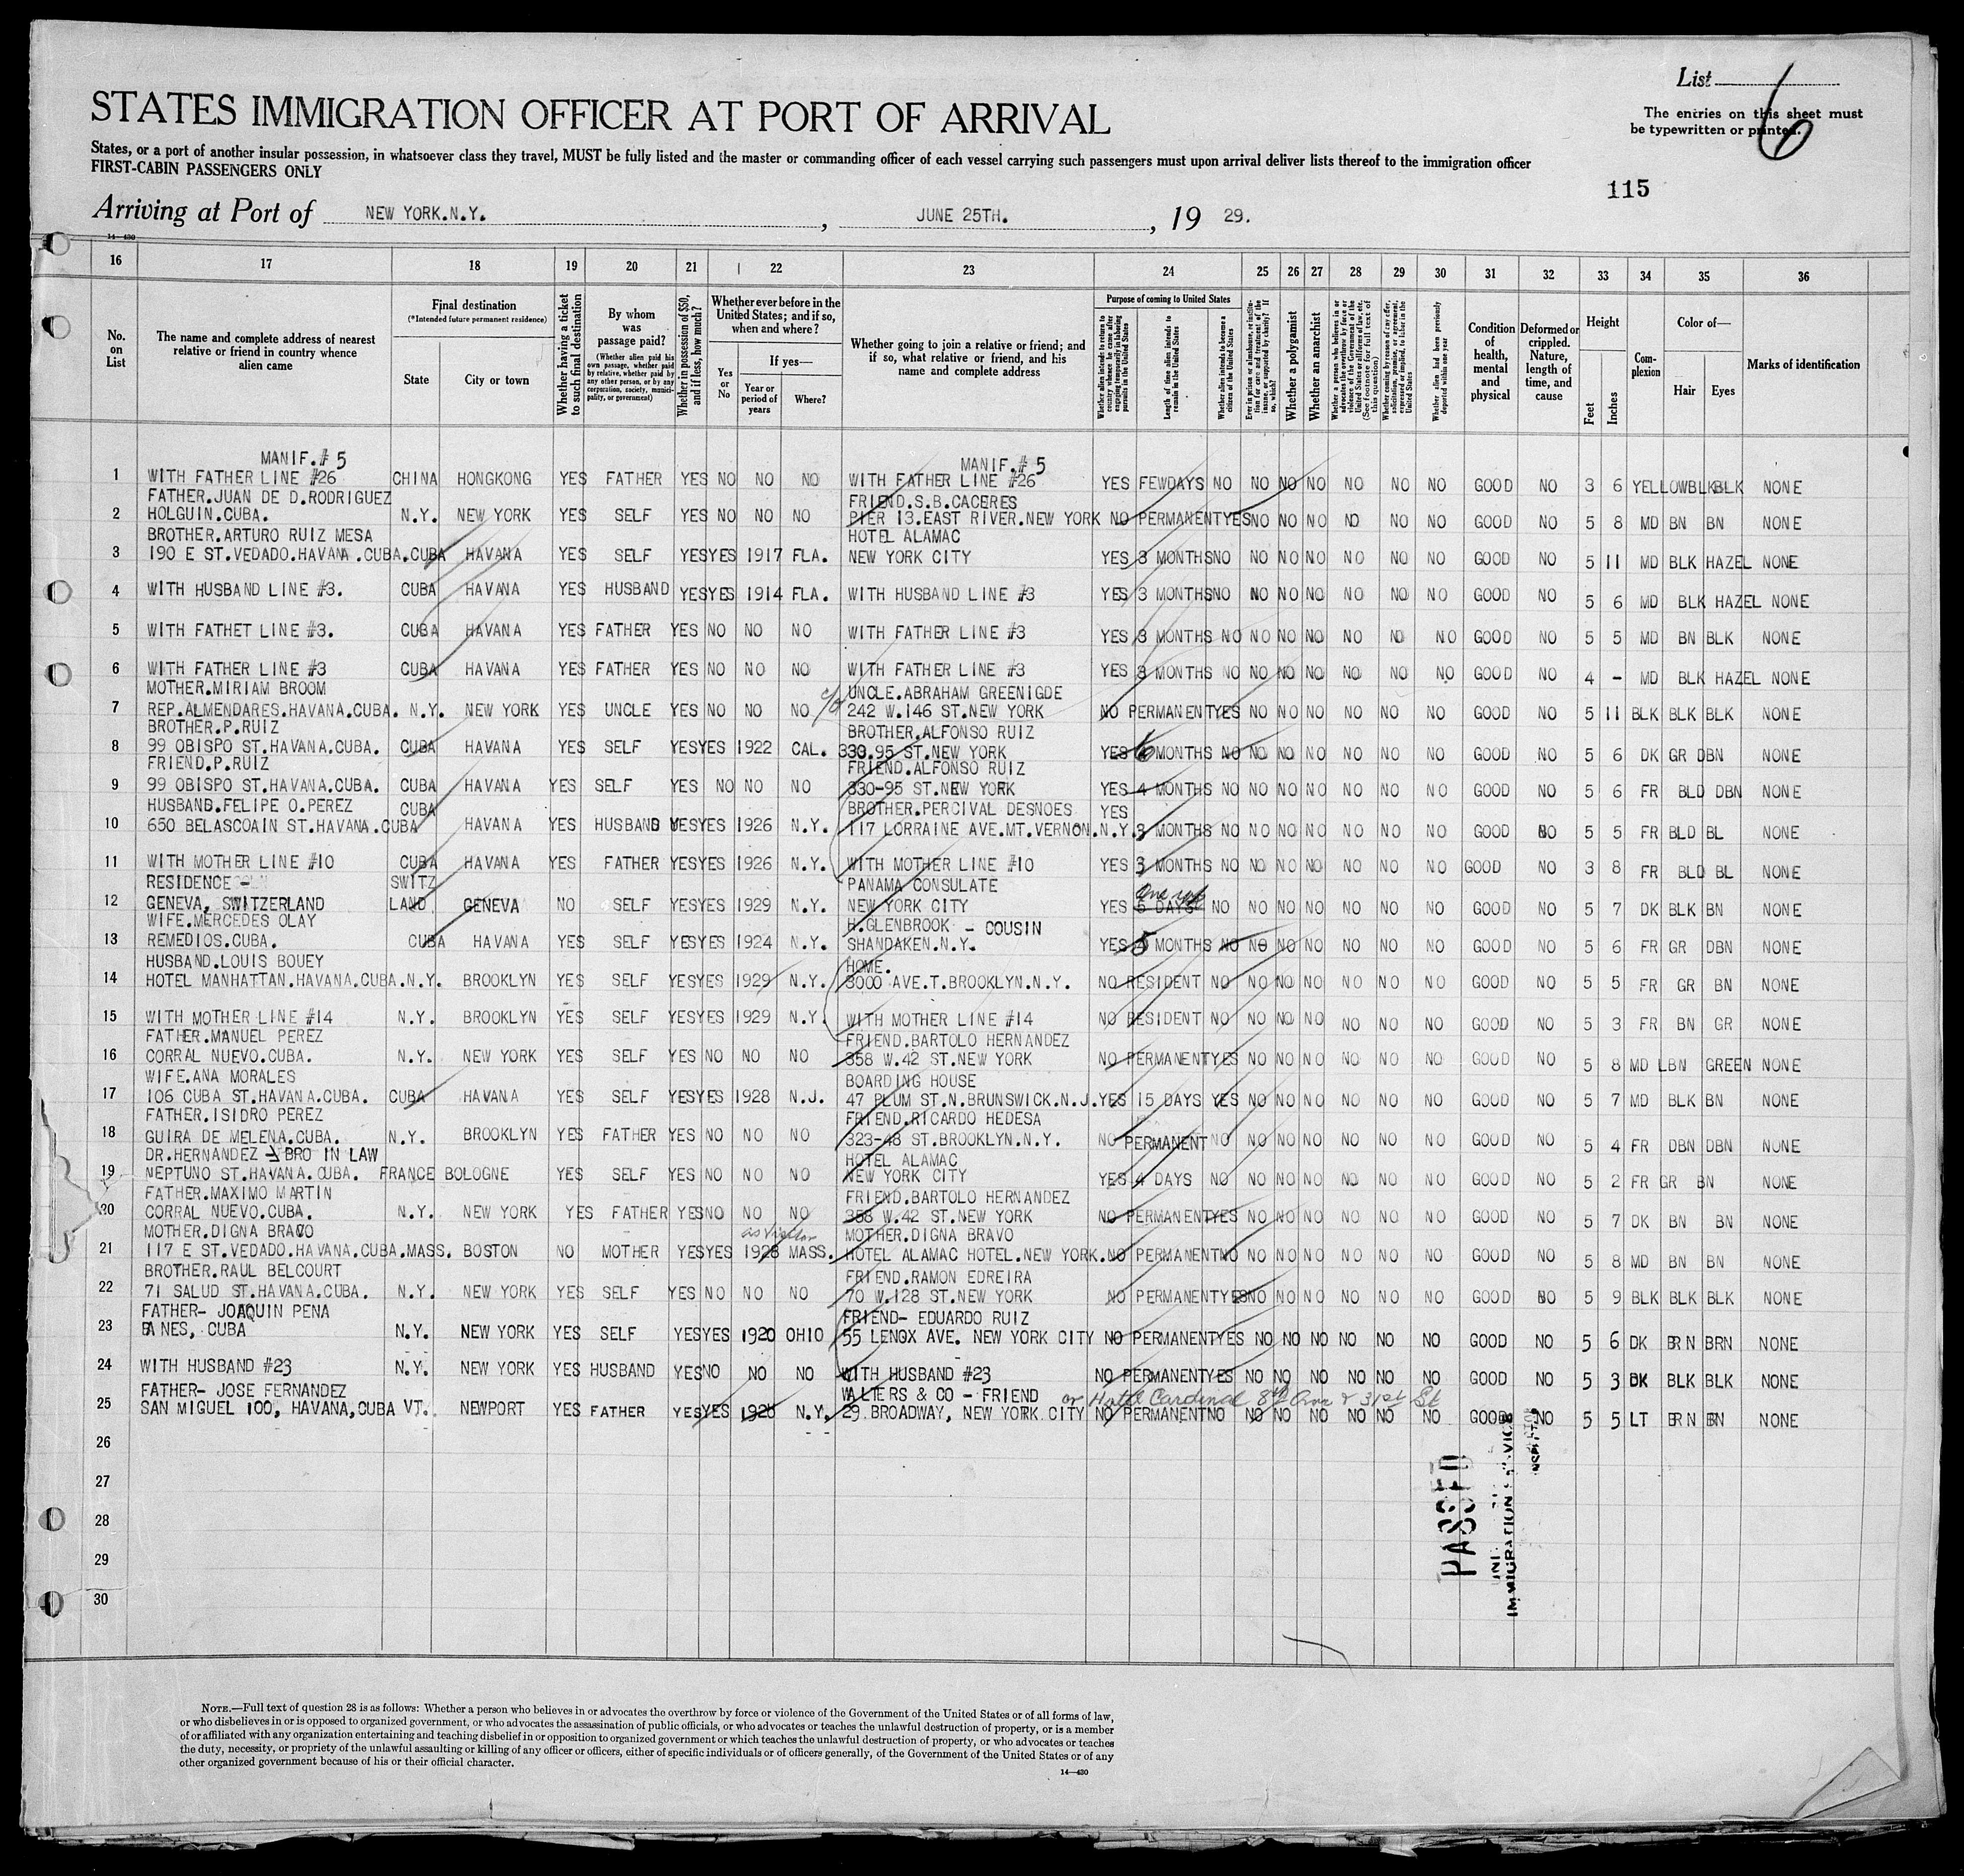 List 6
The entries on this sheet must
be typewritten or printed.
STATES IMMIGRATION OFFICER AT PORT OF ARRIVAL
States, or a port of another insular possession, in whatsoever class they travel, MUST be fully listed and the master or commanding officer of each vessel carrying such passengers must upon arrival deliver lists thereof to the immigration officer
FIRST-CABIN PASSENGERS ONLY
115
Arriving at Port of NEW YORK.N.Y. , JUNE 25TH. , 19 29.
14-430
16 17 18 19 20 21 22 23 24 25 26 27 28 29 30 31 32 33 34 35 36
No. on List
The name and complete address of nearest relative or friend in country whence alien came
Final destination (*Intended future permanent residence)
State
City or town
Whether having a ticket to such final destination
By whom was passage paid? (Whether alien paid his own passage, whether paid by relative, whether paid by any other person, or by any corporation, society, municipality, or government)
Whether in possession of $50, and if less, how much?
Whether ever before in the United States; and if so, when and where?
Yes or No
If yes—
Year or period of years
Where?
Whether going to join a relative or friend; and if so, what relative or friend, and his name and complete address
Purpose of coming to United States
Whether alien intends to return to country whence he came after engaging temporarily in laboring pursuits in the United States
Length of time alien intends to remain in the United States
Whether alien intends to become a citizen of the United States
Ever in prison or almshouse, or institution for care and treatment of the insane, or supported by charity? If so, which?
Whether a polygamist
Whether an anarchist
Whether a person who believes in or advocates the overthrow by force or violence of the Government of the United States or all forms of law, etc. (See footnote for full text of this question)
Whether coming by reason of any offer, solicitation, promise, or agreement, expressed or implied, to labor in the United States
Whether alien had been previously deported within one year
Condition of health, mental and physical
Deformed or crippled. Nature, length of time, and cause
Height
Feet
Inches
Complexion
Color of—
Hair
Eyes
Marks of identification
MANIF.# 5 MANIF.# 5
1 WITH FATHER LINE #26 CHINA HONGKONG YES FATHER YES NO NO NO WITH FATHER LINE #26 YES FEWDAYS NO NO NO NO NO NO NO GOOD NO 3 6 YELLOW BLK BLK NONE
FATHER.JUAN DE D.RODRIGUEZ FRIEND.S.B.CACERES
2 HOLGUIN.CUBA. N.Y. NEW YORK YES SELF YES NO NO NO PIER 13.EAST RIVER.NEW YORK NO PERMANENT YES NO NO NO NO NO NO GOOD NO 5 8 MD BN BN NONE
BROTHER.ARTURO RUIZ MESA HOTEL ALAMAC
3 190 E ST.VEDADO.HAVANA.CUBA. CUBA HAVANA YES SELF YES YES 1917 FLA. NEW YORK CITY YES 3 MONTHS NO NO NO NO NO NO NO GOOD NO 5 11 MD BLK HAZEL NONE
4 WITH HUSBAND LINE #3. CUBA HAVANA YES HUSBAND YES YES 1914 FLA. WITH HUSBAND LINE #3 YES 3 MONTHS NO NO NO NO NO NO NO GOOD NO 5 6 MD BLK HAZEL NONE
5 WITH FATHET LINE #3. CUBA HAVANA YES FATHER YES NO NO NO WITH FATHER LINE #3 YES 3 MONTHS NO NO NO NO NO NO NO GOOD NO 5 5 MD BN BLK NONE
6 WITH FATHER LINE #3 CUBA HAVANA YES FATHER YES NO NO NO WITH FATHER LINE #3 YES 3 MONTHS NO NO NO NO NO NO NO GOOD NO 4 - MD BLK HAZEL NONE
MOTHER.MIRIAM BROOM c/o UNCLE.ABRAHAM GREENIGDE
7 REP.ALMENDARES.HAVANA.CUBA. N.Y. NEW YORK YES UNCLE YES NO NO NO 242 W.146 ST.NEW YORK NO PERMANENT YES NO NO NO NO NO NO GOOD NO 5 11 BLK BLK BLK NONE
BROTHER.P.RUIZ BROTHER.ALFONSO RUIZ
8 99 OBISPO ST.HAVANA.CUBA. CUBA HAVANA YES SELF YES YES 1922 CAL. 330.95 ST.NEW YORK YES 6 MONTHS NO NO NO NO NO NO NO GOOD NO 5 6 DK GR DBN NONE
FRIEND.P.RUIZ FRIEND.ALFONSO RUIZ
9 99 OBISPO ST.HAVANA.CUBA. CUBA HAVANA YES SELF YES NO NO NO 330-95 ST.NEW YORK YES 4 MONTHS NO NO NO NO NO NO NO GOOD NO 5 6 FR BLD DBN NONE
HUSBAND.FELIPE O.PEREZ CUBA BROTHER.PERCIVAL DESNOES YES
10 650 BELASCOAIN ST.HAVANA.CUBA HAVANA YES HUSBAND YES YES 1926 N.Y. 117 LORRAINE AVE.MT.VERNON.N.Y. 3 MONTHS NO NO NO NO NO NO NO GOOD NO 5 5 FR BLD BL NONE
11 WITH MOTHER LINE #10 CUBA HAVANA YES FATHER YES YES 1926 N.Y. WITH MOTHER LINE #10 YES 3 MONTHS NO NO NO NO NO NO NO GOOD NO 3 8 FR BLD BL NONE
RESIDENCE - SWITZ PANAMA CONSULATE One wk
12 GENEVA, SWITZERLAND LAND GENEVA NO SELF YES YES 1929 N.Y. NEW YORK CITY YES 5 DAYS NO NO NO NO NO NO NO GOOD NO 5 7 DK BLK BN NONE
WIFE.MERCEDES OLAY H.GLENBROOK - COUSIN
13 REMEDIOS.CUBA. CUBA HAVANA YES SELF YES YES 1924 N.Y. SHANDAKEN.N.Y. YES 5 MONTHS NO NO NO NO NO NO NO GOOD NO 5 6 FR GR DBN NONE
HUSBAND.LOUIS BOUEY HOME.
14 HOTEL MANHATTAN.HAVANA.CUBA. N.Y. BROOKLYN YES SELF YES YES 1929 N.Y. 3000 AVE.T.BROOKLYN.N.Y. NO RESIDENT NO NO NO NO NO NO NO GOOD NO 5 5 FR GR BN NONE
15 WITH MOTHER LINE #14 N.Y. BROOKLYN YES SELF YES YES 1929 N.Y. WITH MOTHER LINE #14 NO RESIDENT NO NO NO NO NO NO NO GOOD NO 5 3 FR BN GR NONE
FATHER.MANUEL PEREZ FRIEND.BARTOLO HERNANDEZ
16 CORRAL NUEVO.CUBA. N.Y. NEW YORK YES SELF YES NO NO NO 358 W.42 ST.NEW YORK NO PERMANENT YES NO NO NO NO NO NO GOOD NO 5 8 MD LBN GREEN NONE
WIFE.ANA MORALES BOARDING HOUSE
17 106 CUBA ST.HAVANA.CUBA. CUBA HAVANA YES SELF YES YES 1928 N.J. 47 PLUM ST.N.BRUNSWICK.N.J. YES 15 DAYS YES NO NO NO NO NO NO GOOD NO 5 7 MD BLK BN NONE
FATHER.ISIDRO PEREZ FRIEND.RICARDO HEDESA
18 GUIRA DE MELENA.CUBA. N.Y. BROOKLYN YES FATHER YES NO NO NO 323-48 ST.BROOKLYN.N.Y. NO PERMANENT NO NO NO NO NO NO NO GOOD NO 5 4 FR DBN DBN NONE
DR.HERNANDEZ - BRO IN LAW HOTEL ALAMAC
19 NEPTUNO ST.HAVANA.CUBA. FRANCE BOLOGNE YES SELF YES NO NO NO NEW YORK CITY YES 4 DAYS NO NO NO NO NO NO NO GOOD NO 5 2 FR GR BN NONE
FATHER.MAXIMO MARTIN FRIEND.BARTOLO HERNANDEZ
20 CORRAL NUEVO.CUBA. N.Y. NEW YORK YES FATHER YES NO NO NO 358 W.42 ST.NEW YORK NO PERMANENT YES NO NO NO NO NO NO GOOD NO 5 7 DK BN BN NONE
MOTHER.DIGNA BRAVO as visitor MOTHER.DIGNA BRAVO
21 117 E ST.VEDADO.HAVANA.CUBA. MASS. BOSTON NO MOTHER YES YES 1928 MASS. HOTEL ALAMAC HOTEL.NEW YORK. NO PERMANENT NO NO NO NO NO NO NO GOOD NO 5 8 MD BN BN NONE
BROTHER.RAUL BELCOURT FRIEND.RAMON EDREIRA
22 71 SALUD ST.HAVANA.CUBA. N.Y. NEW YORK YES SELF YES NO NO NO 70 W.128 ST.NEW YORK NO PERMANENT YES NO NO NO NO NO NO GOOD NO 5 9 BLK BLK BLK NONE
FATHER- JOAQUIN PENA FRIEND- EDUARDO RUIZ
23 BANES, CUBA N.Y. NEW YORK YES SELF YES YES 1920 OHIO 55 LENOX AVE. NEW YORK CITY NO PERMANENT YES NO NO NO NO NO NO GOOD NO 5 6 DK BRN BRN NONE
24 WITH HUSBAND #23 N.Y. NEW YORK YES HUSBAND YES NO NO NO WITH HUSBAND #23 NO PERMANENT YES NO NO NO NO NO NO GOOD NO 5 3 DK BLK BLK NONE
FATHER- JOSE FERNANDEZ WALTERS & CO - FRIEND or Hotel Cardinal 8th Ave & 31st St
25 SAN MIGUEL 100, HAVANA, CUBA VT. NEWPORT YES FATHER YES YES 1928 N.Y. 29 BROADWAY, NEW YORK CITY NO PERMANENT NO NO NO NO NO NO NO GOOD NO 5 5 LT BRN BN NONE
26
27
28
29
30
PASSED
IMMIGRATION SERVICE
INSPECTOR
NOTE.—Full text of question 28 is as follows: Whether a person who believes in or advocates the overthrow by force or violence of the Government of the United States or of all forms of law,
or who disbelieves in or is opposed to organized government, or who advocates the assassination of public officials, or who advocates or teaches the unlawful destruction of property, or is a member
of or affiliated with any organization entertaining and teaching disbelief in or opposition to organized government or which teaches the unlawful destruction of property, or who advocates or teaches
the duty, necessity, or propriety of the unlawful assaulting or killing of any officer or officers, either of specific individuals or of officers generally, of the Government of the United States or of any
other organized government because of his or their official character.
14—430